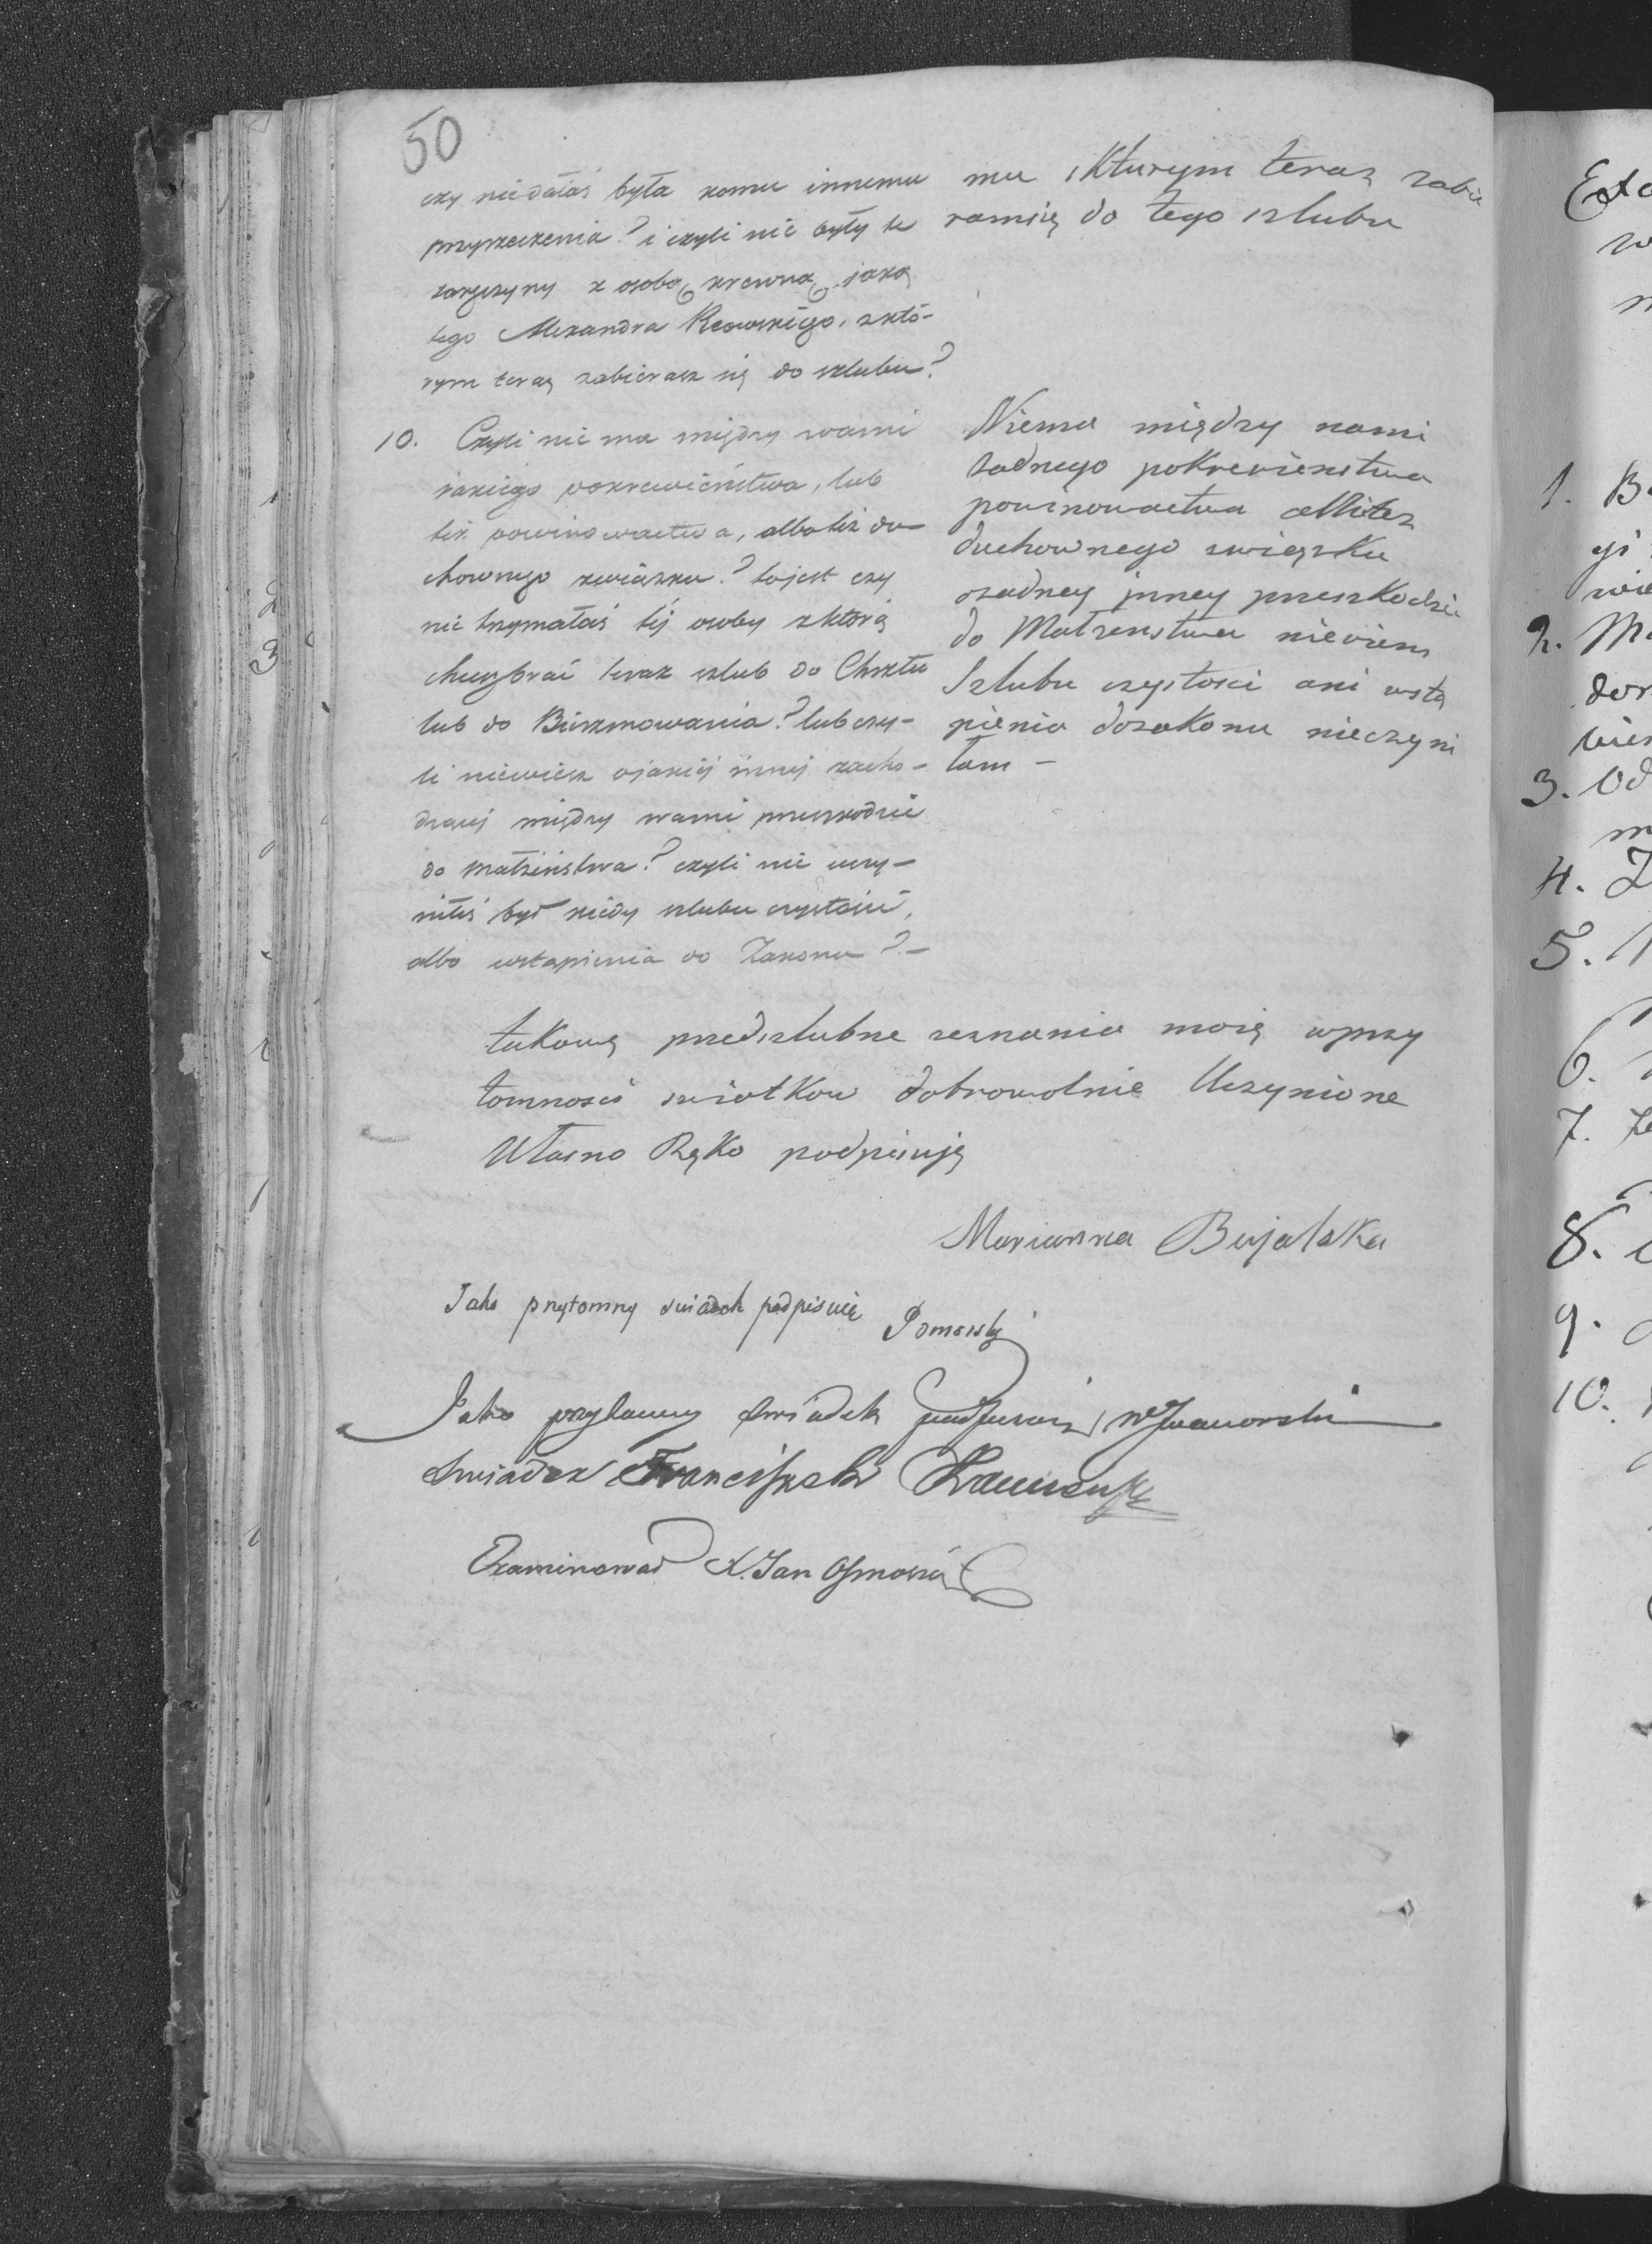 50
czy niedałaś była komu innemu
przyrzeczenia? i czyli nie były te
zaręczyny z osobą krewną jaką
tego Alexandra z któ-
rym teraz zabierasz się do szlubu?
10. Czyli nie ma między wami
jakiego pokrewieństwa, lub
też powinowactwa, albo też du-
chownego związku? to jest czy
nie trzymałaś téj osoby z którą
chcesz brać teraz szlub do Chrztu
lub do Bierzmowania? lub czy-
li niewiesz o jakiéj innéj zacho-
dzącéj między wami przeszkodzie
do małżeństwa? czyli nie uczy-
niłaś był kiedy szlubu czystości,
albo wstąpienia do Zakonu? -
mu zkturym teraz zabie
ramsię do tego szlubu
Niema między nami
żadnego pokrewienstwa
powinowactwa allitez
duchownego związku
ożadney inney przeszkodzie
do Małzenstwa niewiem
Szlubu czystosci ani wstą
pienia dozakonu nieczyni
łam -
takową przedszlubne zeznania moią wprzy
tomnosci swiatkow dobrowolnie Uczynione
Własno Ręko podpisuję
Marianna Bujalska
Jako przytomny swiadek podpisuię
Jako przytomny swiadek podpisuię
Swiadek Franciszek
Examinował X. Jan
Exa
1. B
2. Ma
3. Od
4. Z
5.
6.
7.
8.
9.
10.